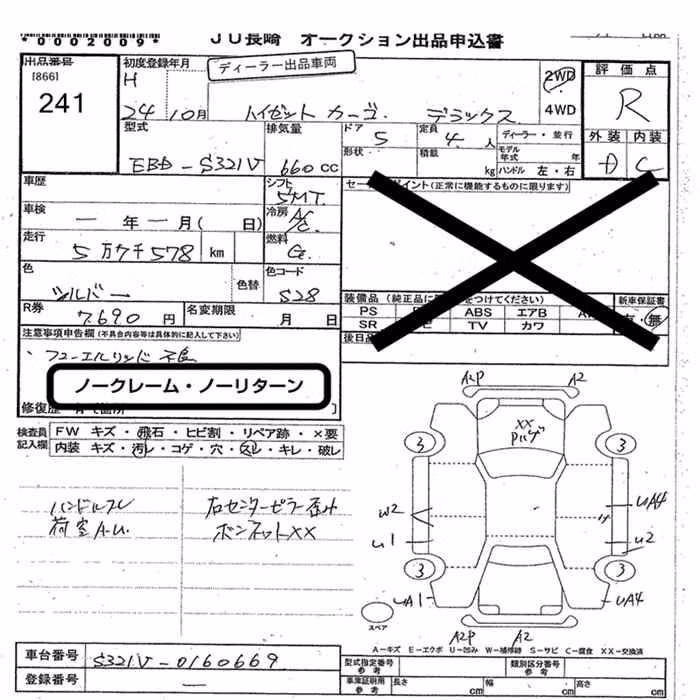 *0002009*
JU長崎 オークション出品申込書
出品番号
[866]
241
初度登録年月
ディーラー出品車両
H
24 10月
ハイゼット カーゴ デラックス
2WD
4WD
評価点
R
外装 内装
D C
型式
EBD-S321V
排気量
660cc
ドア 5
定員 4 人
ディーラー・並行
形状
積載 kg
モデル年式 年
ハンドル 左・右
車歴
シフト
5MT
セールスポイント(正常に機能するものに限ります)
車検
ー年ー月( 日)
冷房
A/C
走行
5万7千578 km
燃料
G
色
シルバー
色替
色コード
S28
装備品(純正品に
をつけてください)
新車保証書
有・無
R券
7,690円
名変期限
月 日
PS
ABS
エアB
SR
TV
カワ
後日品
注意事項申告欄(不具合内容等は具体的に記入して下さい)
フューエルリッド不良
ノークレーム・ノーリターン
修復歴
検査員記入欄
FW キズ・飛石・ヒビ割・リペア跡・×要
内装 キズ・汚レ・コゲ・穴・スレ・キレ・破レ
ハンドルスレ
荷室A.U.
右センターピラー歪み
ボンネットXX
A2P
A2
XX
Pハゲ
3
3
W2
UA4
U1
U2
3
3
UA1
UA4
スペア
A2P
A2
A-キズ E-エクボ U-凹み W-補修跡 S-サビ C-腐食 XX-交換済
車台番号
S321V-0160669
登録番号
ー
型式指定番号 参考
類別区分番号 参考
車庫証明用 参考
長さ cm
幅 cm
高さ cm